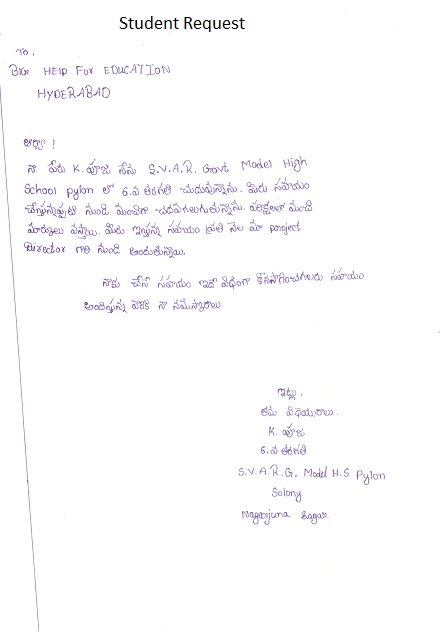 Student Request
To,
BIG HELP FOR EDUCATION
HYDERABAD
ఆర్యా !
నా పేరు K. పూజ నేను S.V.A.R. Govt Model High
School pylon లో 6.వ తరగతి చదువుచున్నాను. మీరు సహాయం
చేస్తున్నప్పటి నుండి మంచిగా చదవగలుగుతున్నాను. పరీక్షలలో మంచి
మార్కులు వస్తాయి. మీరు ఇస్తున్న సహాయం ప్రతి నెల మా project
Director గారి నుండి అందుతున్నాయి.
నాకు చేసే సహాయం ఇదే విధంగా కొనసాగించగలరు సహాయం
అందిస్తున్న వారికి నా నమస్కారాలు.
ఇట్లు,
తమ విధేయురాలు.
K. పూజ
6.వ తరగతి
S.V.A.R.G. Model H.S Pylon
Solony
Nagarjuna Sagar